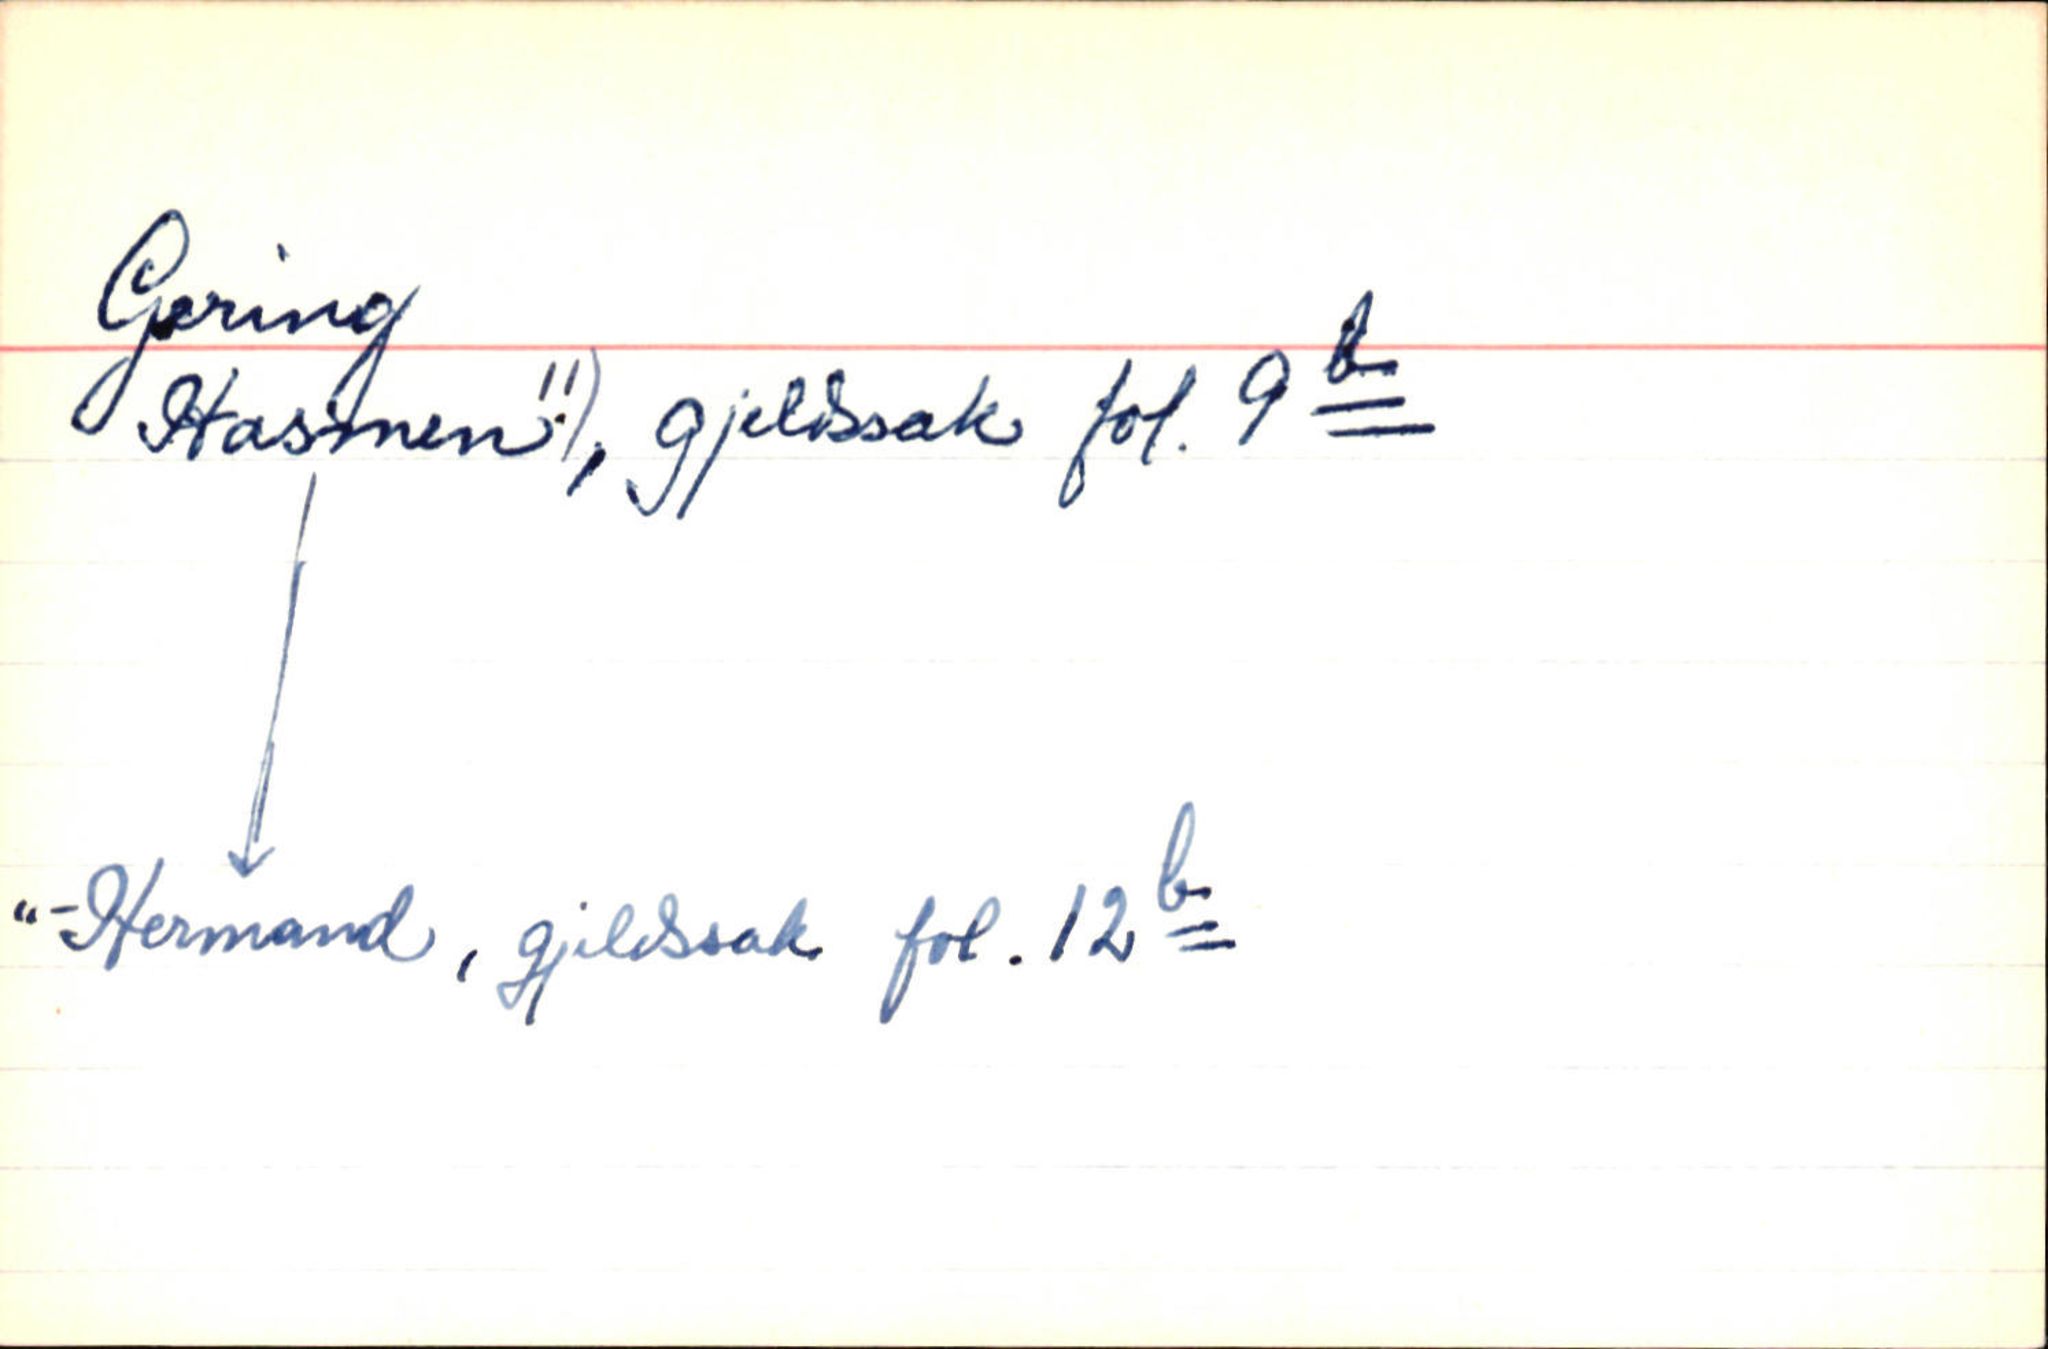 Gering
Hasmen"!), gjeldssak fol. 9 b
"-Hermand, gjeldssak fol. 12 b